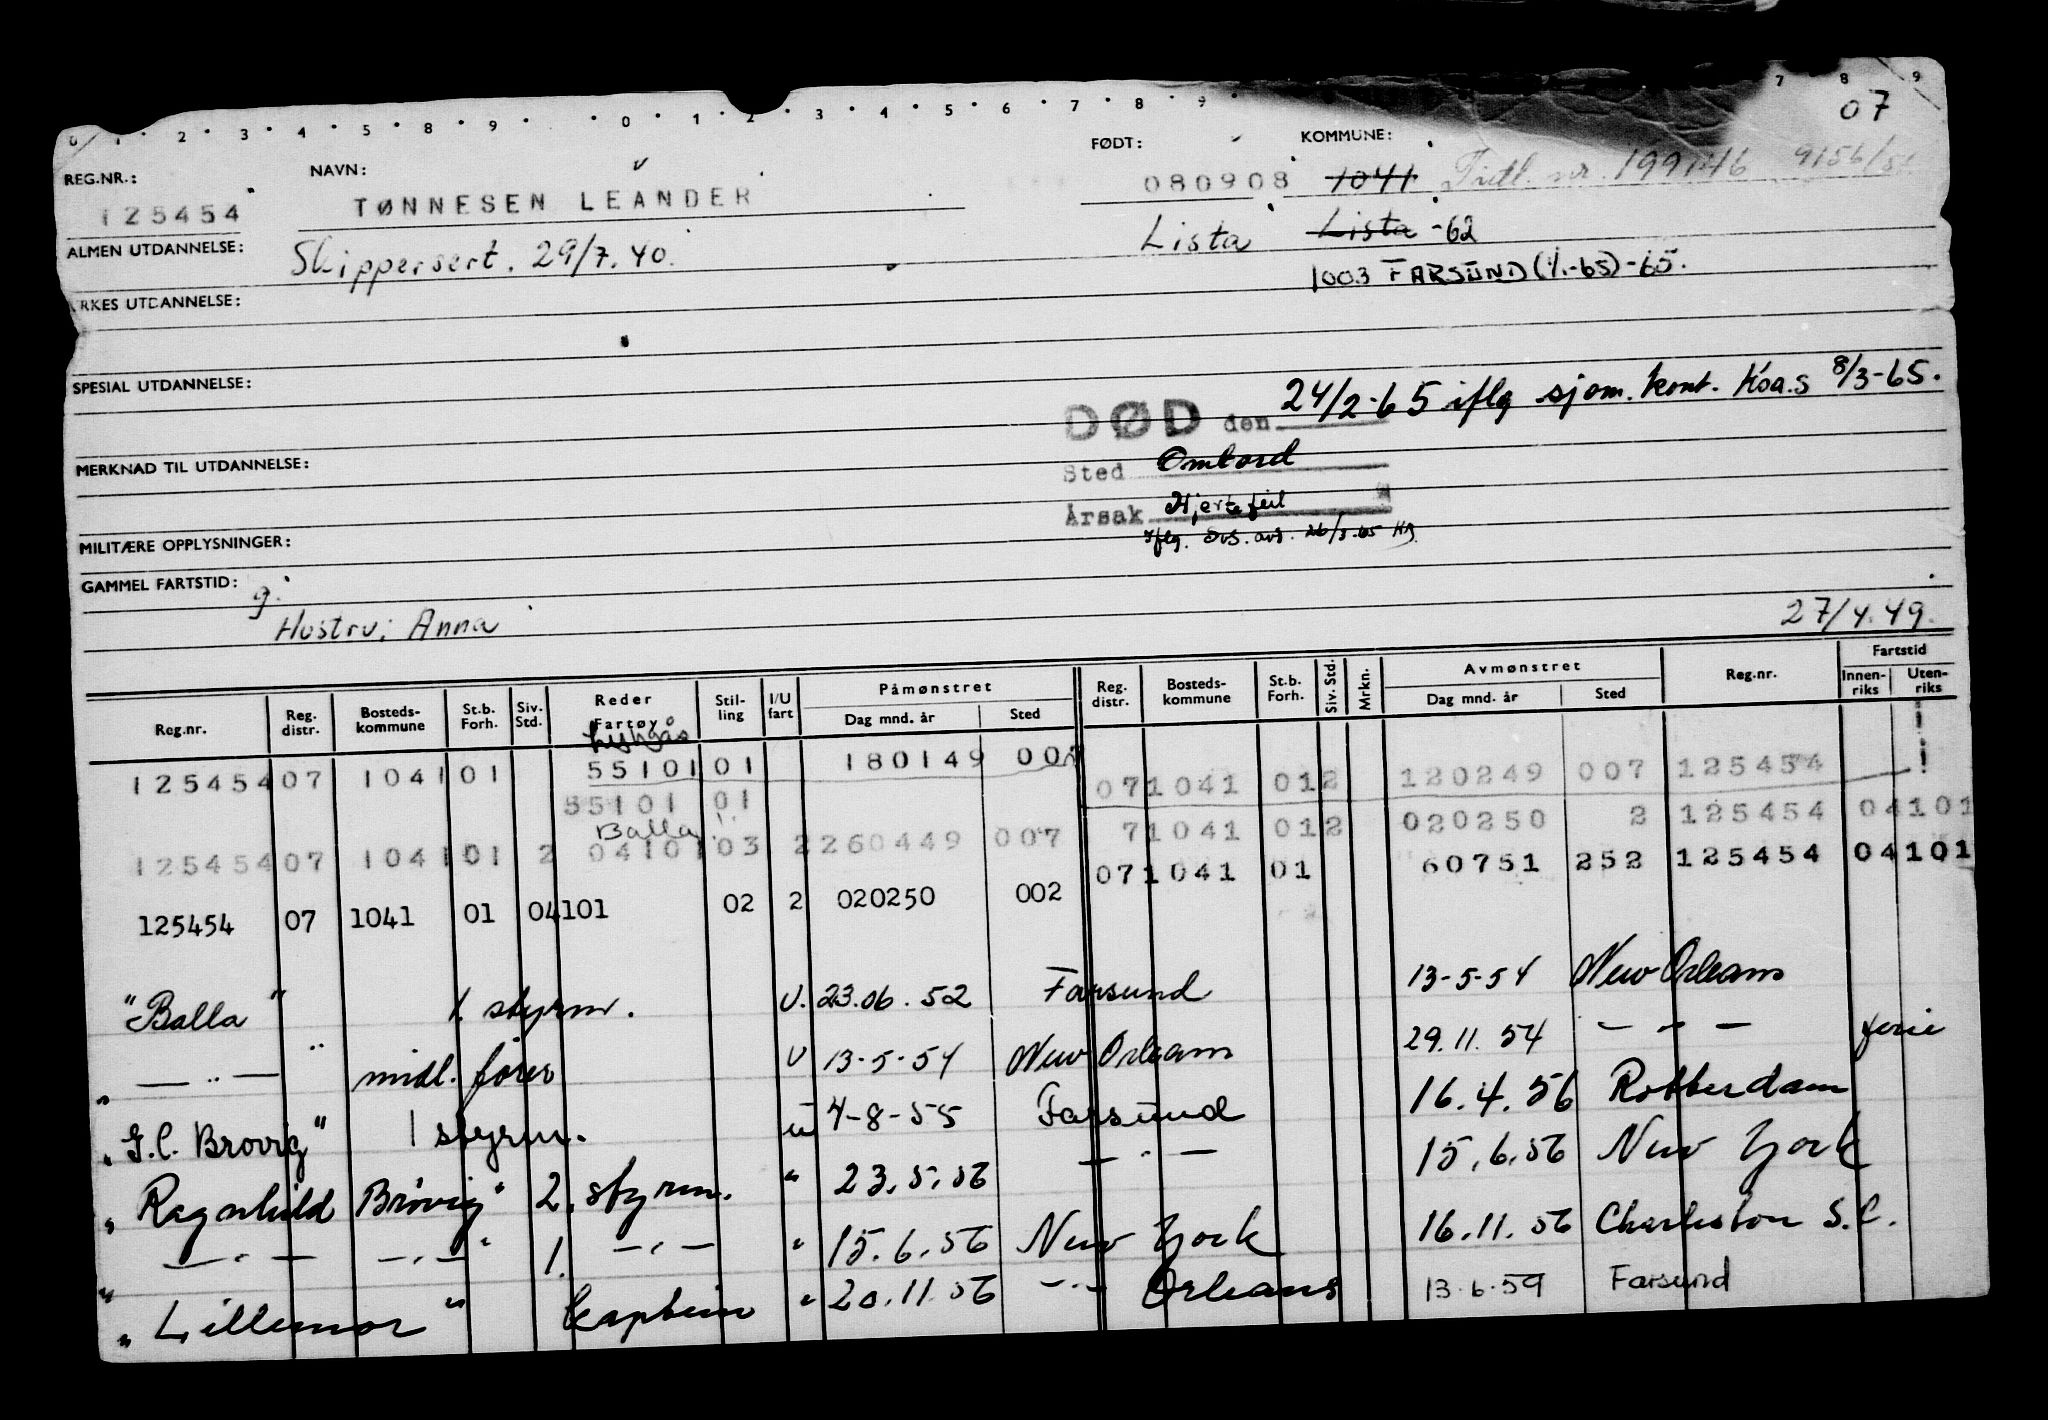 0 1 2 3 4 5 8 9 0 1 2 3 4 5 6 7 8 9 7 8 9
07
REG.NR.: NAVN: FØDT: KOMMUNE:
125454 TØNNESEN LEANDER 080908 1041 Tidl. nr. 199146 9156/
ALMEN UTDANNELSE: Skippersert. 29/7.40. Lista Lista -62
1003 FARSUND (1/1-65)-65.
YRKES UTDANNELSE:
SPESIAL UTDANNELSE:
DØD den 24/2-65 iflg sjøm. kont. Koa.s 8/3-65.
MERKNAD TIL UTDANNELSE: Sted Ombord
Årsak Hjertefeil
MILITÆRE OPPLYSNINGER: Iflg. avs. 26/3.65 HA
GAMMEL FARTSTID: g.
Hustru: Anna 27/4.49.
Reg.nr. Reg. distr. Bosteds- kommune St.b. Forh. Siv. Std. Reder Fartøy Stil- ling I/U fart Påmønstret Dag mnd. år Sted Reg. distr. Bosteds- kommune St.b. Forh. Siv. Std. Mrkn. Avmønstret Dag mnd. år Sted Reg.nr. Fartstid Innen- riks Uten- riks
125454 07 1041 01 55101 01 180149 007 07 1041 01 2 120249 007 125454
55101 01
Balla
125454 07 1041 01 2 04101 03 2 260449 007 7 1041 01 2 020250 2 125454 04 101
125454 07 1041 01 04101 02 2 020250 002 07 1041 01 60751 252 125454 04 101
"Balla" 1. styrm. U. 23.06.52 Farsund 13-5-54 New Orleans
— " — " midl. fører U 13-5-54 New Orleans 29.11.54 — " — ferie
"G.C. Brøvig" 1 styrm. u 4-8-55 Farsund 16.4.56 Rotterdam
"Ragnhild Brøvig" 2. styrm. " 23.5.56 — " — 15.6.56 New York
" — " — — " — " 1. — " — " 15.6.56 New York 16.11.56 Charleston S.C.
"Lillemor" Kaptein " 20.11.56 — " — Orleans 13.6.59 Farsund